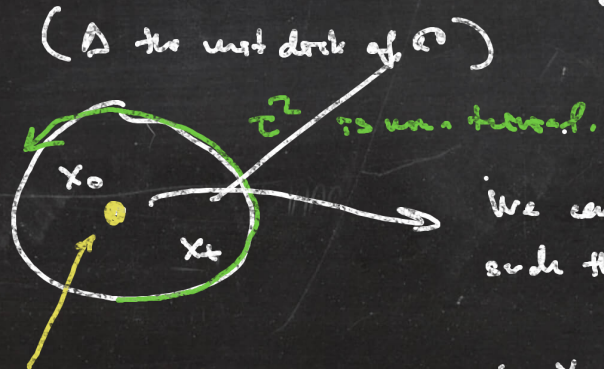 (Δ the unit disk of ℂ)
τ² is non-trivial.
X₀
We can
Xₜ
such th